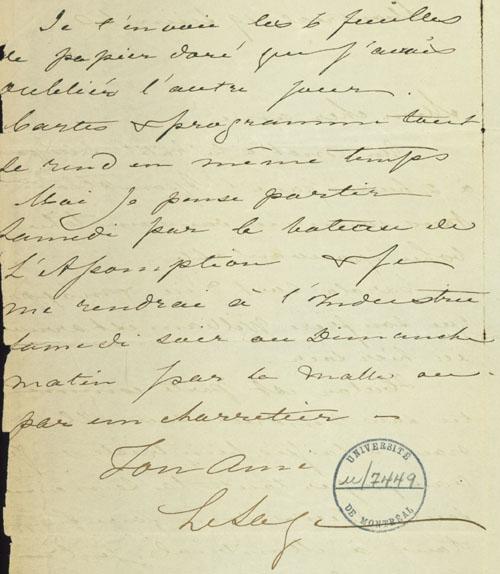 Je t'envoie les 6 feuilles
de papier doré que j'avais
oubliés l'autre jour.
Cartes & programme tout
se rend en même temps
Moi je pense partir
Samedi par le bateau de
L'Assomption & je
me rendrai à l'Industrie
Samedi soir ou Dimanche
matin par la malle ou
par un charretier —
Ton Ami
LeSage
UNIVERSITÉ
u/7449
DE MONTRÉAL